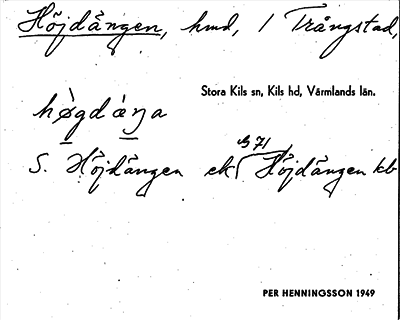 Höjdången, hmd, / Trångstad,
Stora Kils sn, Kils hd, Värmlands län.
hø̀gdàŋa
S. Höjdången ek Höjdången kb
PER HENNINGSSON 1949